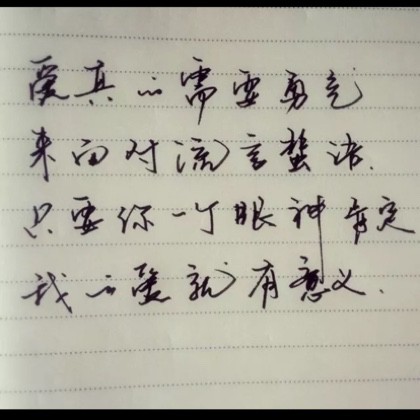 爱真的需要勇气
来面对流言蜚语.
只要你一个眼神肯定
我的爱就有意义.